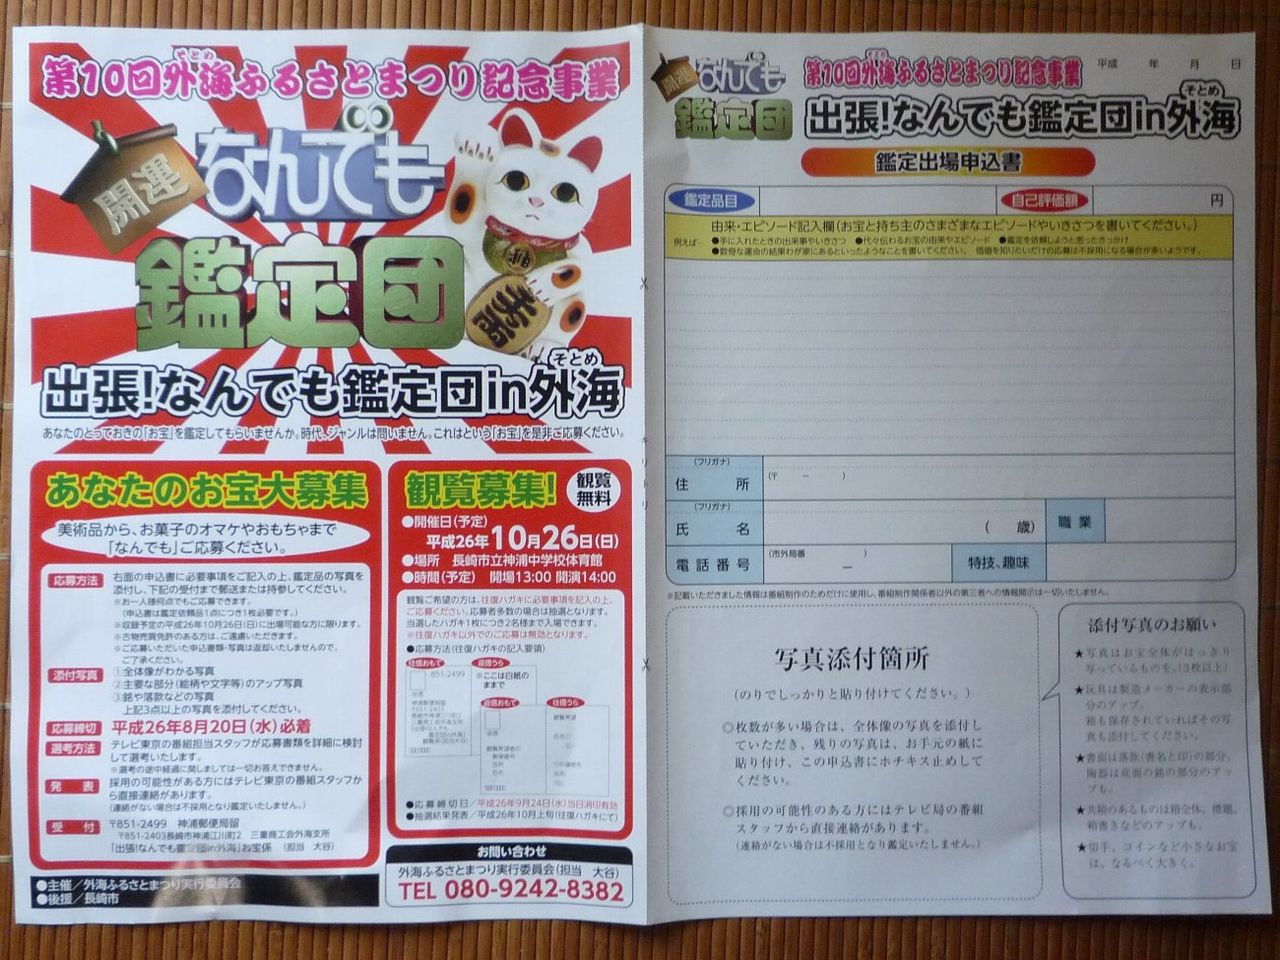 第10回外海ふるさとまつり記念事業
そとめ
開運
なんでも
鑑定団
そとめ
出張!なんでも鑑定団in外海
あなたのとっておきの「お宝」を鑑定してもらいませんか。時代、ジャンルは問いません。これはという「お宝」を是非ご応募ください。
あなたのお宝大募集
美術品から、お菓子のオマケやおもちゃまで
「なんでも」ご応募ください。
応募方法
右面の申込書に必要事項をご記入の上、鑑定品の写真を
添付し、下記の受付まで郵送または持参してください。
※お一人様何点でもご応募できます。
(申込書は鑑定依頼品1点につき1枚必要です。)
※収録予定の平成26年10月26日(日)に出場可能な方に限ります。
※古物売買免許のある方は、ご遠慮いただきます。
※ご応募いただいた申込書類・写真は返却いたしませんので、
ご了承ください。
添付写真
①全体像がわかる写真
②主要な部分(絵柄や文字等)のアップ写真
③銘や落款などの写真
上記3点以上の写真を添付してください。
応募締切
平成26年8月20日(水)必着
選考方法
テレビ東京の番組担当スタッフが応募書類を詳細に検討
して選考いたします。
※選考の途中経過に関しましては一切お答えできません。
発表
採用の可能性がある方にはテレビ東京の番組スタッフか
ら直接連絡があります。
(連絡がない場合は不採用となり鑑定いたしません。)
受付
〒851-2499 神浦郵便局留
〒851-2403長崎市神浦江川町2 三重商工会外海支所
「出張!なんでも鑑定団in外海」お宝係 (担当 大谷)
●主催/外海ふるさとまつり実行委員会
●後援/長崎市
観覧募集!
観覧
無料
●開催日(予定)
平成26年10月26日(日)
●場所 長崎市立神浦中学校体育館
●時間(予定) 開場13:00 開演14:00
観覧ご希望の方は、往復ハガキに必要事項を記入の上、
ご応募ください。応募者多数の場合は抽選となります。
当選したハガキ1枚につき2名様まで入場できます。
※往復ハガキ以外でのご応募は無効となります。
●応募方法(往復ハガキの記入要領)
往信おもて
851-2499
返信うら
※ここは白紙の
ままで
返信おもて
往信うら
●応募締切日/平成26年9月24日(水)当日消印有効
●抽選結果発表/平成26年10月上旬(往復ハガキにて)
お問い合わせ
外海ふるさとまつり実行委員会(担当 大谷)
TEL 080-9242-8382
開運
なんでも
鑑定団
そとめ
第10回外海ふるさとまつり記念事業
平成 年 月 日
そとめ
出張!なんでも鑑定団in外海
鑑定出場申込書
鑑定品目
自己評価額
円
由来・エピソード記入欄(お宝と持ち主のさまざまなエピソードやいきさつを書いてください。)
例えば…
●手に入れたときの出来事やいきさつ ●代々伝わるお宝の由来やエピソード ●鑑定を依頼しようと思ったきっかけ
●数奇な運命の結果わが家にあるといったようなことを書いてください。 価値を知りたいだけの応募は不採用になる場合が多いようです。
(フリガナ)
住所
(〒 − )
(フリガナ)
氏名
( 歳)
職業
電話番号
(市外局番 )
−
特技、趣味
※記載いただきました情報は番組制作のためだけに使用し、番組制作関係者以外の第三者への情報開示は一切いたしません。
写真添付箇所
(のりでしっかりと貼り付けてください。)
◎枚数が多い場合は、全体像の写真を添付し
ていただき、残りの写真は、お手元の紙に
貼り付け、この申込書にホチキス止めして
ください。
◎採用の可能性のある方にはテレビ局の番組
スタッフから直接連絡があります。
(連絡がない場合は不採用となり鑑定いたしません。)
添付写真のお願い
★写真はお宝全体がはっきり
写っているものを。(3枚以上)
★玩具は製造メーカーの表示部
分のアップ。
箱も保存されていればその写
真も添付してください。
★書画は落款(書名と印)の部分、
陶器は底面の銘の部分のアッ
プも。
★共箱のあるものは箱全体、標題、
箱書きなどのアップも。
★切手、コインなど小さなお宝
は、なるべく大きく。